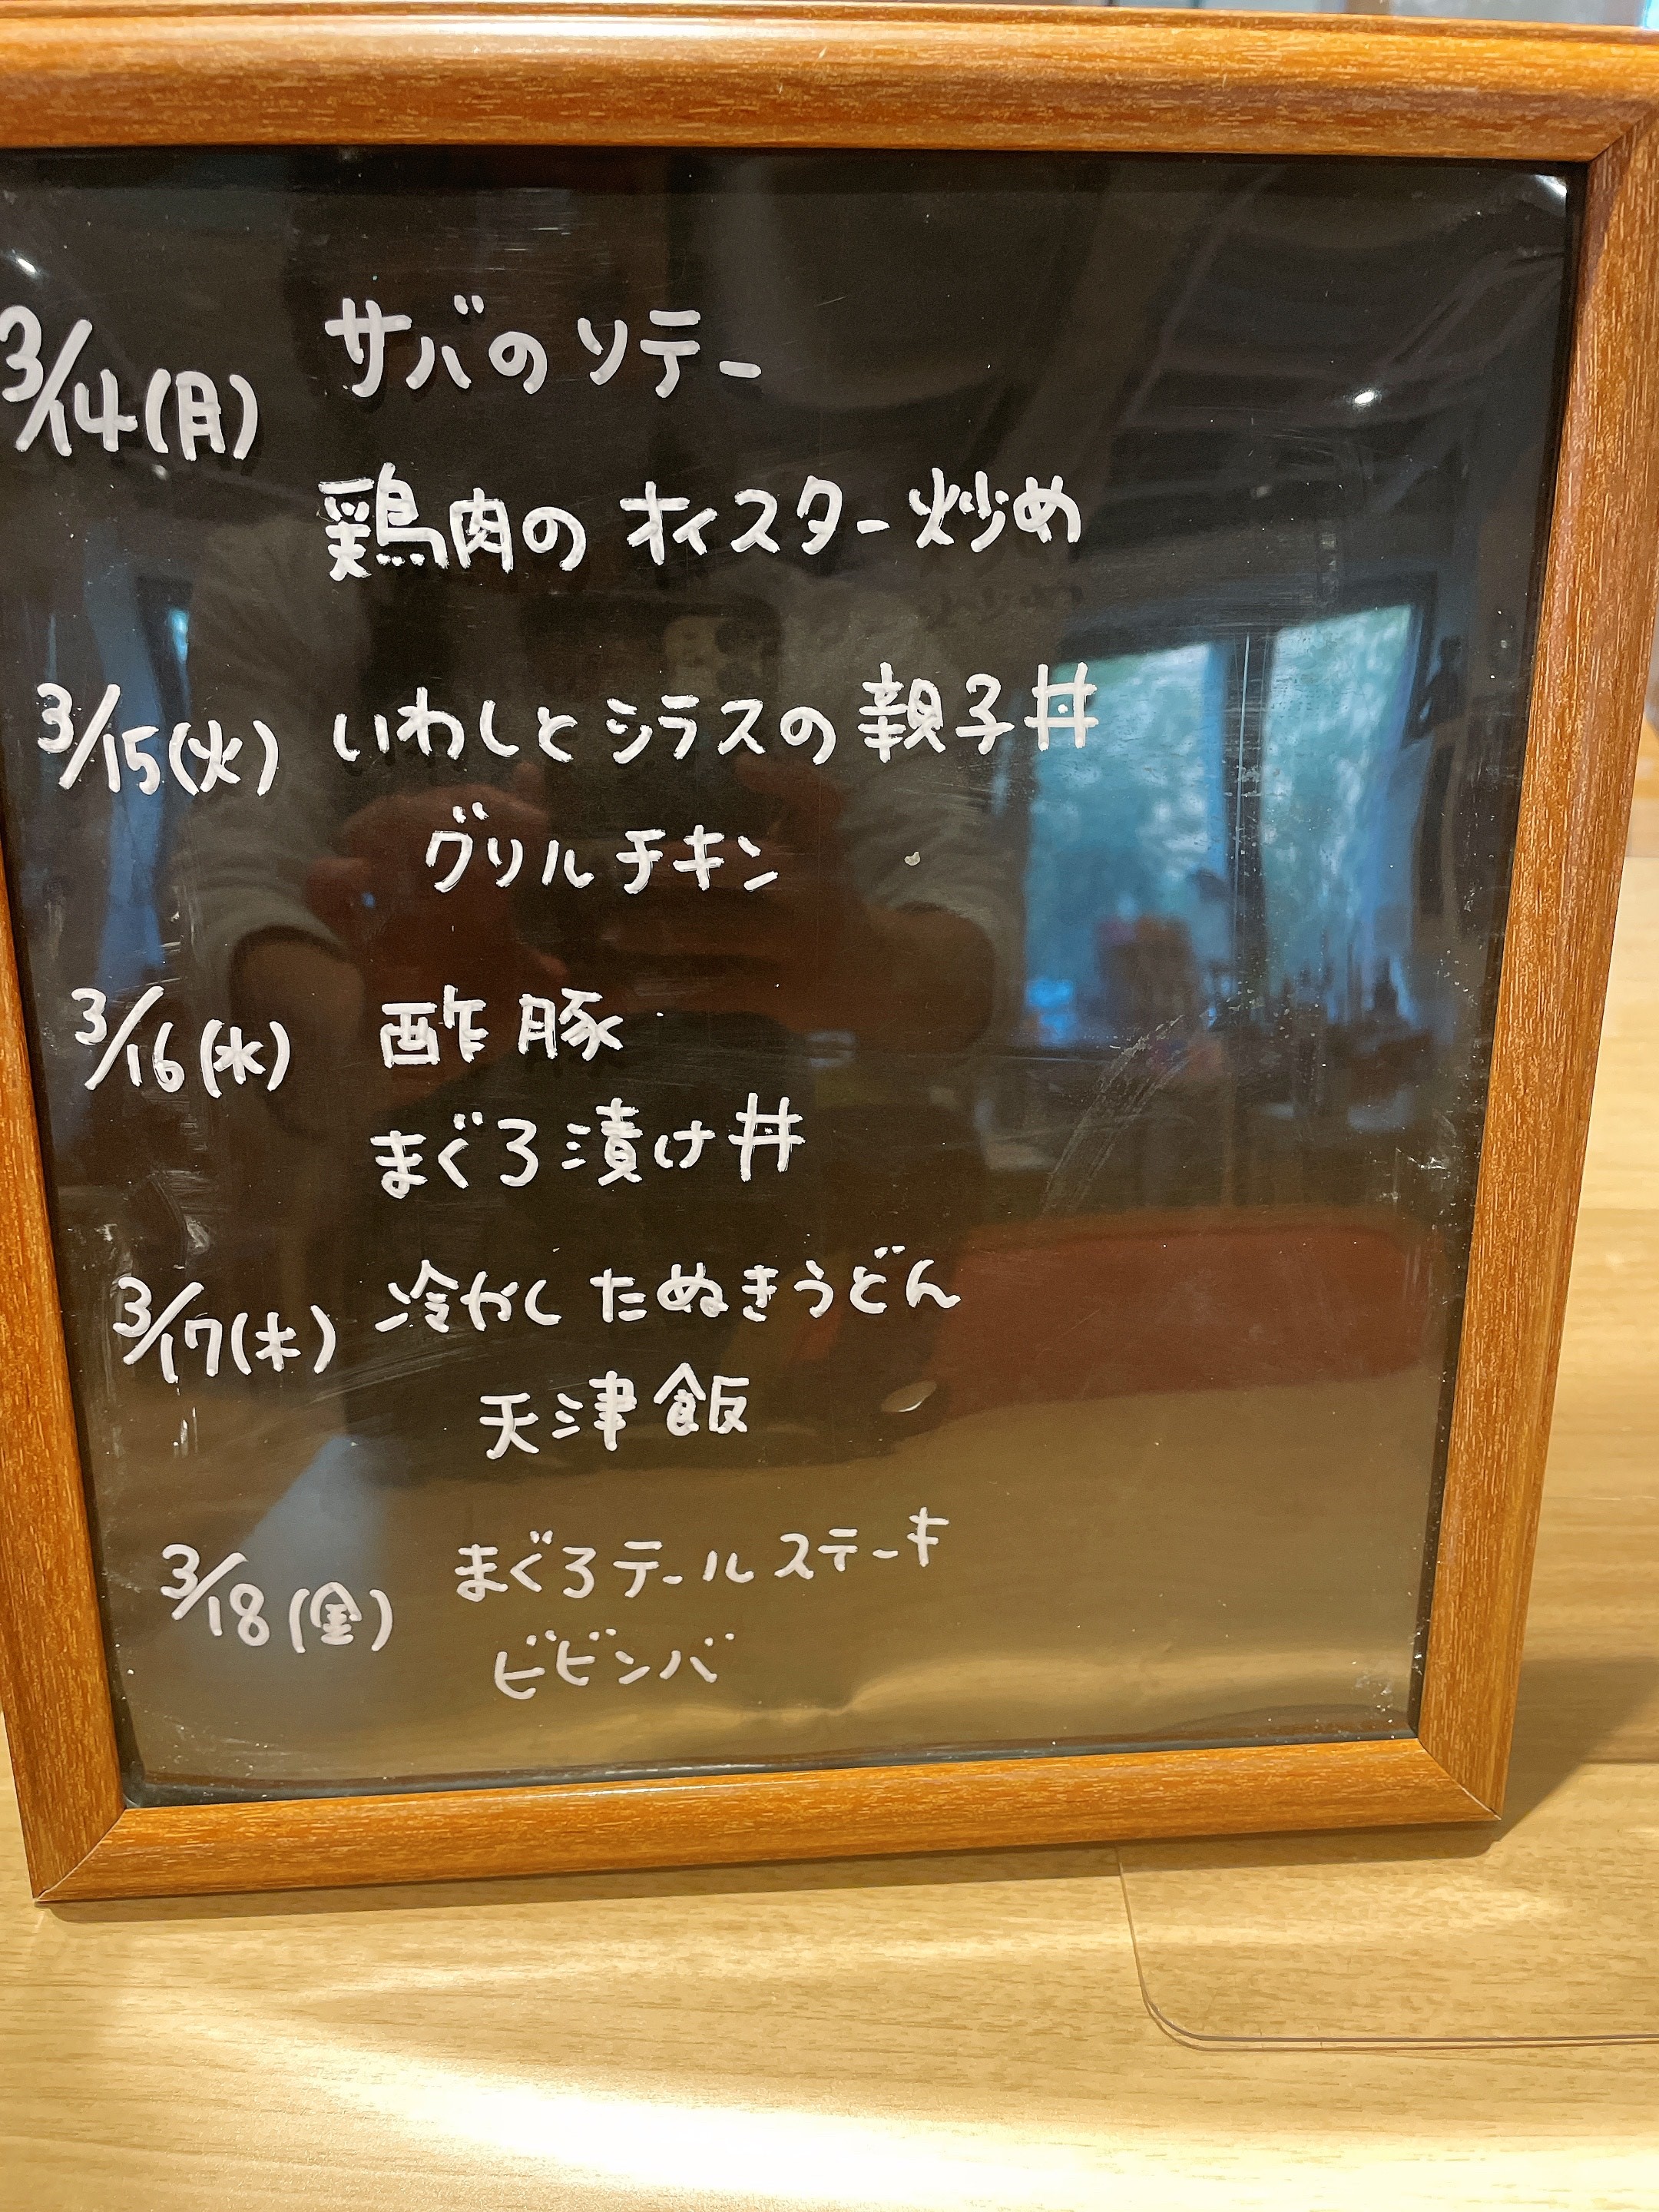 3/14(月) サバのソテー
鶏肉のオイスター炒め
3/15(火) いわしとシラスの親子丼
グリルチキン
3/16(水) 酢豚
まぐろ漬け丼
3/17(木) 冷やし たぬきうどん
天津飯
3/18(金) まぐろテールステーキ
ビビンバ